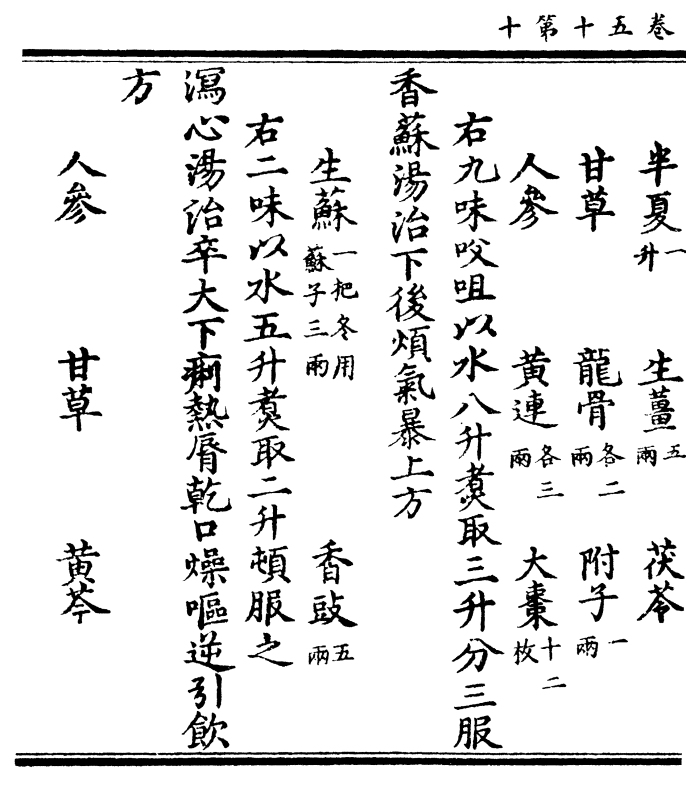 卷五十第十
半夏一升 生薑五兩 茯苓
甘草 龍骨各二兩 附子一兩
人參 黃連各三兩 大棗十二枚
右九味㕮咀以水八升煑取三升分三服
香蘇湯治下後煩氣暴上方
生蘇一把冬用蘇子三兩 香豉五兩
右二味以水五升煑取二升頓服之
瀉心湯治卒大下痢熱脣乾口燥嘔逆引飲
方
人參 甘草 黃芩